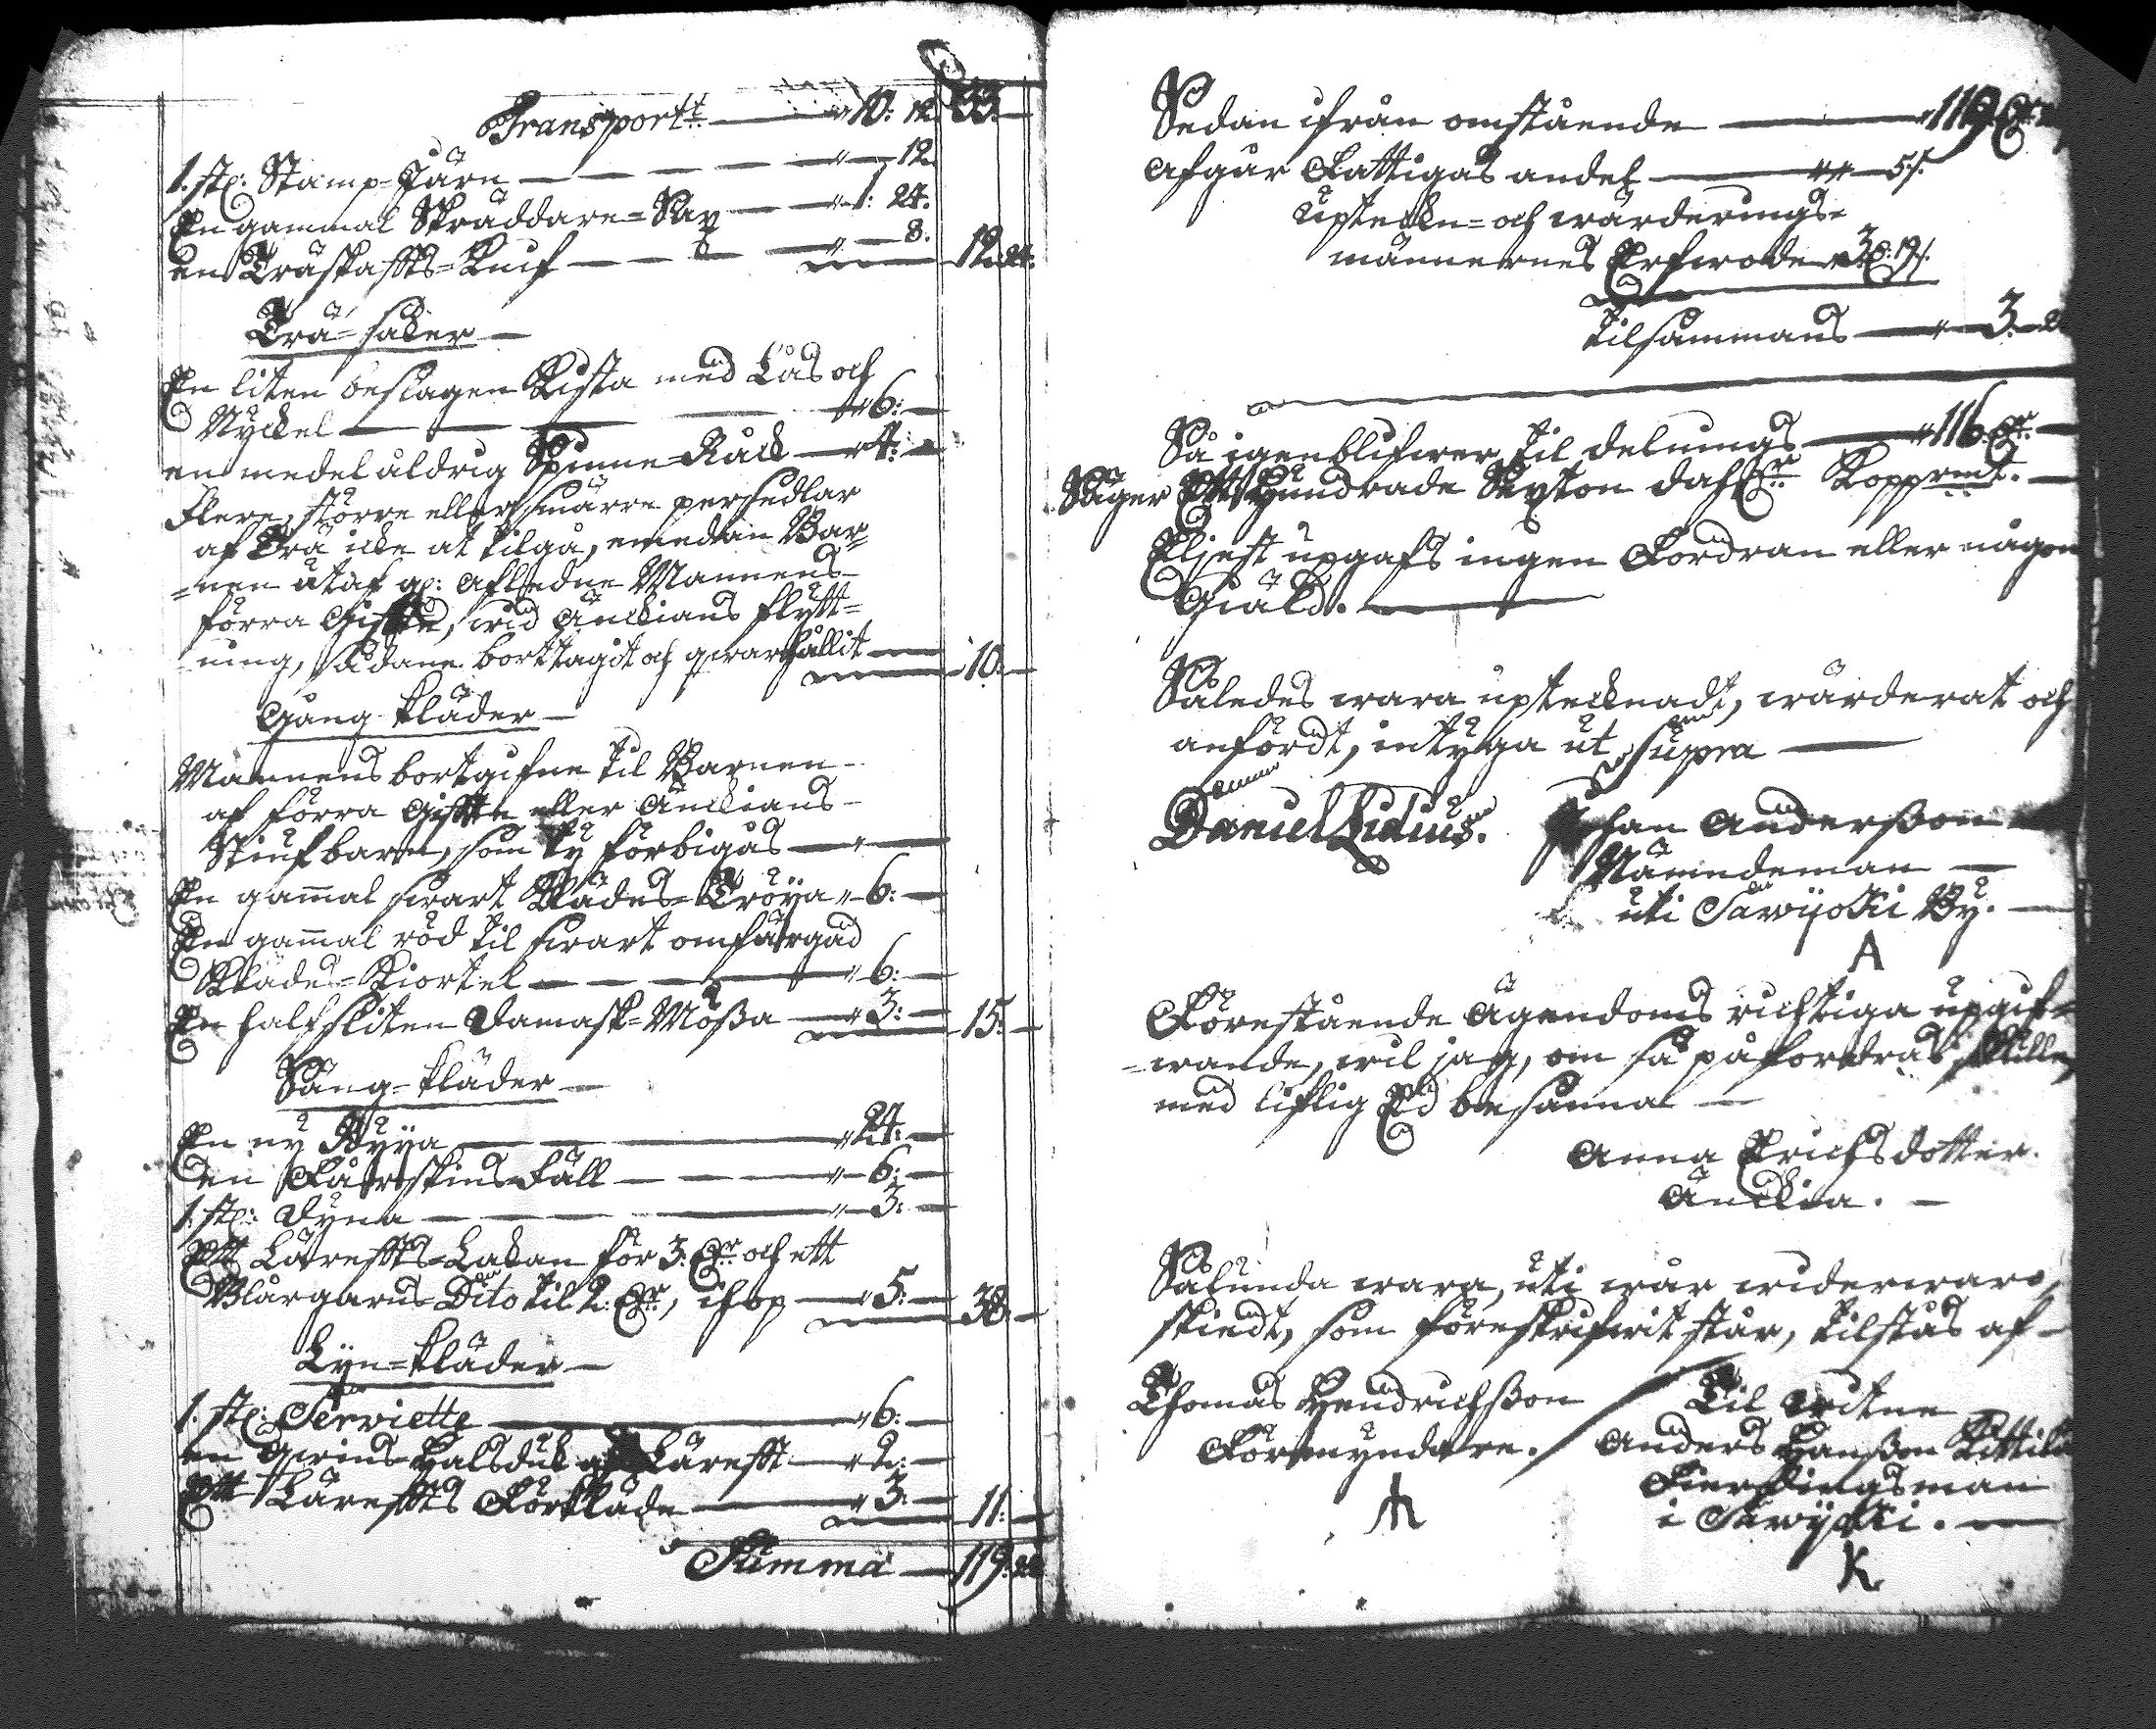 Transportt " 10: 12. 33.
1. st: Stamp-Järn " 12.
En gammal Skräddare-Sax " 1: 24.
en Träskaffts-Knif " 8. 12: 24.
Trä-saker
En liten beslagen Kista med Lås och
Nyckel " 6:
en medel åldrig Spinne-Råck " 4:
Flere, större eller smärre persedlar
af Trä icke at tilgå, emedan Bar=
=nen utaf aflednе Mannens
förra Gifte, wid Änckians flytt=
ning, sådane borttagit och qwarhållit 10:
Gång-kläder
Mannens bortgifne til Barnen
af förra Gifte eller Änckians
Stiufbarn, som ty förbigås
En gam̄al swart Klädes-Tröija " 6:
En gam̄al röd til swart omfärgad
Klädes-Kiortel " 6:
En half sliten Damask-Mössa " 3: 15.
Säng-kläder
En ny Ryya " 24:
en Fårskins Fäll " 6:
1. st: Dyna " 3:
Ett Lärefts-Lakan för 3. och ett
Blårgarns Dito til 2. , ihop " 5: 38:
Lijn-kläder
1. st: Serviette " 6:
en qwins-Halsduk af Lärefft " 2:
Ett Lärefts Förkläde " 3: 11:
Summa 119:
Sedan ifrån omstående " 119
Afgår Fattigas andel " "
Upteckn- och wärderings=
männernes Arfwode " 3
tilsammans " 3.
Så igenblifwer til delnings " 116.
Säger Ett Hundrade Sexton dahlr Kopprmt.
Eljest upgafs ingen Fordran eller någon
Giäld.
Således wara uptecknadt, wärderat och
anfördt, intyga ut supra
Daniel Lidius. Johan Andersson
Nämndeman
uti Sawijoki By.
A
Förestående Ägendoms richtiga upgif=
=wande, wil jag, om så påfordras skulle,
med liflig Ed besanna
Anna Erichsdotter.
Änckia.
Salunda wara, uti wår widerwaro,
skiedt, som föreskrifwit står, tilstås af
Thomas Hendrichsson Til witne
Förmyndare. Anders Hansson Kittilä
Fierdingsman
i Sawijoki.
K